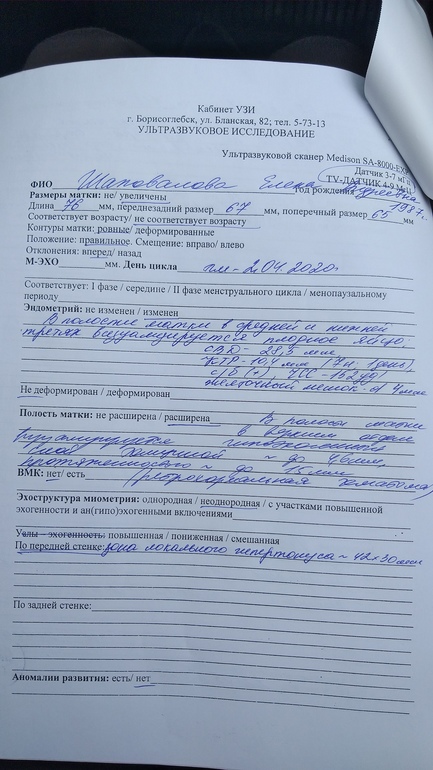 Кабинет УЗИ
г. Борисоглебск, ул. Бланская, 82; тел. 5-73-13
УЛЬТРАЗВУКОВОЕ ИССЛЕДОВАНИЕ
Ультразвуковой сканер Medison SA-8000-EX
Датчик 3-7 мГц
TV-ДАТЧИК 4-9 МГц
ФИО Шаповалова Елена год рождения 1987г.
Размеры матки: не/ увеличены
Длина 76 мм, переднезадний размер 67 мм, поперечный размер 65 мм
Соответствует возрасту/ не соответствует возрасту
Контуры матки: ровные/ деформированные
Положение: правильное. Смещение: вправо/ влево
Отклонения: вперед/ назад
М-ЭХО мм. День цикла пм - 2.04.2020г
Соответствует: I фазе / середине / II фазе менструального цикла / менопаузальному
периоду
Эндометрий: не изменен / изменен
В полости матки в средней и нижней
третях визуализируется плодное яйцо.
СВД - 28,5 мм
КТР - 10,4 мм (7 н. 1 день)
с/б (+), ЧСС - 152 уд
желточный мешок - d 4 мм
Не деформирован / деформирован
Полость матки: не расширена / расширена В полости матки
визуализируется гипоэхогенная
зона толщиной ~ до 4,6 мм,
протяженностью ~ до 15 мм
ВМК: нет/ есть (ретрохориальная гематома)
Эхоструктура миометрия: однородная / неоднородная / с участками повышенной
эхогенности и ан(гипо)эхогенными включениями
Узлы - эхогенность: повышенная / пониженная / смешанная
По передней стенке: зона локального гипертонуса ~ 42х30 мм
По задней стенке:
Аномалии развития: есть/ нет